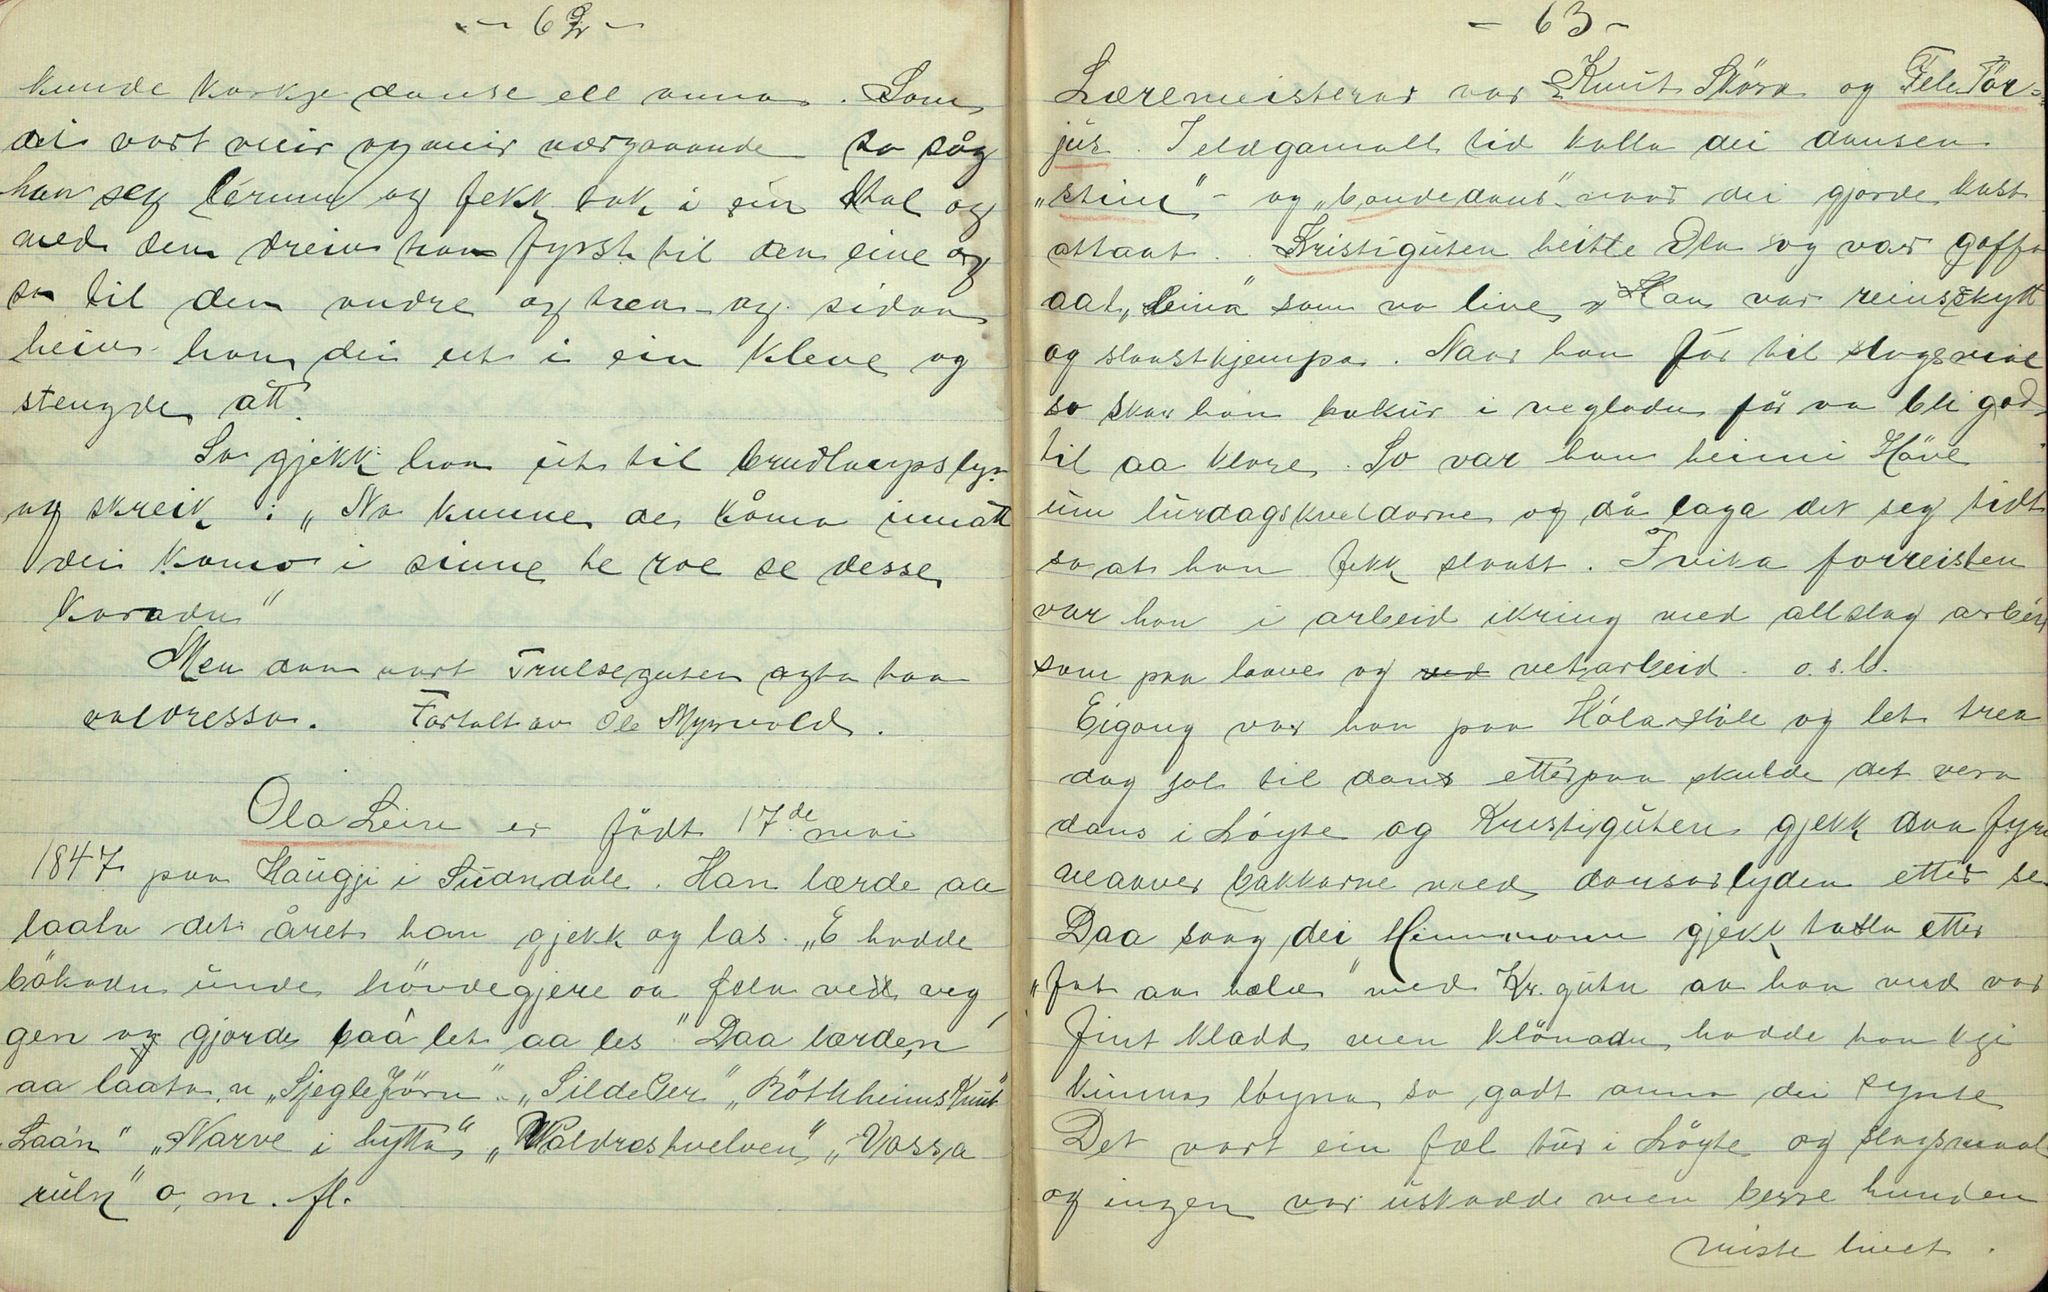 - 62 -
kunde korkje danse ell anna. Som
det vart meir og meir nærgaaande so såg
han seg ikrıng og fekk tak i ein stol og
med den dreiv han fyrst til den eine og
so til den andre og trea - og sidan
heiv han dei ut i ein kleve og
stengde att.
So gjekk han ut til brudlaupslyn
og skreik: „No kunne de kåma innatt
dei kamo i sinne te roe se desse
karadn"
Men daa vart Trulseguten agta taa
valdresso. Fortalt av Ole Myrvold.
Ola Leine er födt 17de mai
1847 paa Haugji i Südndale. Han lærde aa
laata det året han gjekk og las. „E hadde
bökadn unde hövdegjere aa fela ved veg
gen og gjorde baa let aa les" Daa lærde n
aa laata n „SjegleJörn" - „SildePer" „RöthheimsKnut
Laa'n" „Narve i hytta" „Valdreskvelven" „Vossa
rüln" o, m. fl.
- 63 -
Læremeisterar var Knut Störa og Fele Tör-
jus. I eldgamall tid kalla dei dansen
„stine" - og „bondedans" naar dei gjorde kast
attaat. Kristiguten heitte Ola og var goffa
aat „Leina" som no live, „Han var reinsskytt
og slaastkjempa. Naar han för til slagsmål
so skar han hakur i vegladn för aa bli god
til aa klore. So var han heimi Høve
um lurdagskveldarne og då laga det seg tidt
so at han fekk slaast. I vika forreisten
var han i arbeid ikring med allslag arbeid
som paa laave og ved vetarbeid o.s.b.
Eigong var han paa Hóla støle og let trea
dag jol til dans etterpaa skulde det vera
dans i Löyte og Kristiguten gjekk daa fyre
neaaver bakkarne med dansarlyden etter se
Daa saag dei Hinmannen gjekk tasla etter
„fot aa hæla" med Kr. gutn aa han med var
fint klædd men klönadn hadde han kje
kunna löyna so godt anna dei synte
Det vart ein fæl tur i Löyte og slagsmaal
og ingen var uskadde men berre hunden
miste livet.